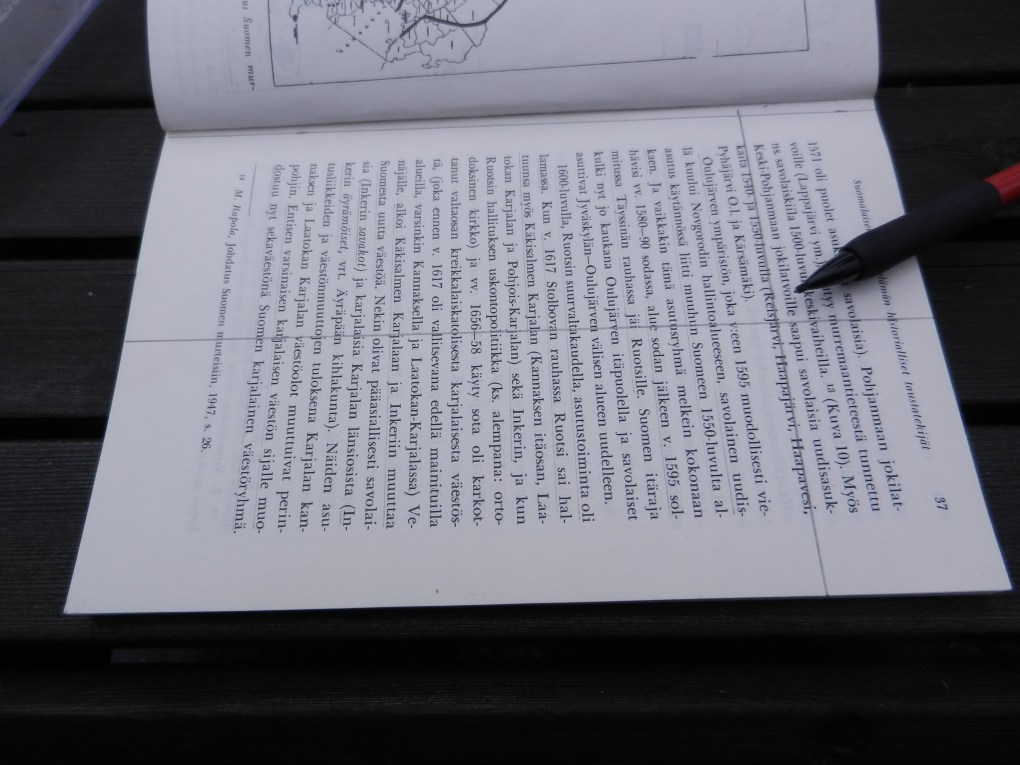 us Suomen mur-
37
Suomalaise ämän historialliset taustatekijät
1571 oli puolet asu savolaisia). Pohjanmaan jokilat-
voille (Lappajärvi ym.) tyy murremaantieteestä tunnettu
ns. savolaiskiila 1500-luvu keskivaiheilla. ¹⁸ (Kuva 10). Myös
Keski-Pohjanmaan jokiluville saapui savolaisia uudisasuk-
kaita 1540- ja 1550-luvuilla (Reisjärvi, Haapajärvi, Haapavesi,
Pyhäjärvi O.l. ja Kärsämäki).
Oulujärven ympäristön, joka v:een 1595 muodollisesti vie-
lä kuului Novgorodin hallintoalueeseen, savolainen uudis-
asutus käytännössä liitti muuhun Suomeen 1550-luvulta al-
kaen. Ja vaikkakin tämä asutusryhmä melkein kokonaan
hävisi vv. 1580–90 sodassa, alue sodan jälkeen v. 1595 sol-
mitussa Täyssinän rauhassa jäi Ruotsille. Suomen itäraja
kulki nyt jo kaukana Oulujärven itäpuolella ja savolaiset
asuttivat Jyväskylän–Oulujärven välisen alueen uudelleen.
1600-luvulla, Ruotsin suurvaltakaudella, asutustoiminta oli
lamassa. Kun v. 1617 Stolbovan rauhassa Ruotsi sai hal-
tuunsa myös Käkisalmen Karjalan (Kannaksen itäosan, Laa-
tokan Karjalan ja Pohjois-Karjalan) sekä Inkerin, ja kun
Ruotsin hallituksen uskontopolitiikka (ks. alempana: orto-
doksinen kirkko) ja vv. 1656–58 käyty sota oli karkot-
tanut valtaosan kreikkalaiskatolisesta karjalaisesta väestös-
tä, (joka ennen v. 1617 oli vallitsevana edellä mainituilla
alueilla, varsinkin Kannaksella ja Laatokan-Karjalassa) Ve-
näjälle, alkoi Käkisalmen Karjalaan ja Inkeriin muuttaa
Suomesta uutta väestöä. Nekin olivat pääasiallisesti savolai-
sia (Inkerin savakot) ja karjalaisia Karjalan länsiosista (In-
kerin äyrämöiset, vrt. Äyräpään kihlakunta). Näiden asu-
tusliikkeiden ja väestönmuuttojen tuloksena Karjalan kan-
naksen ja Laatokan Karjalan väestöolot muuttuivat perin-
pohjin. Entisen varsinaisen karjalaisen väestön sijalle muo-
dostuu nyt sekaväestönä Suomen karjalainen väestöryhmä.
¹⁸ M. Rapola, Johdatus Suomen murteisiin, 1947, s. 26.